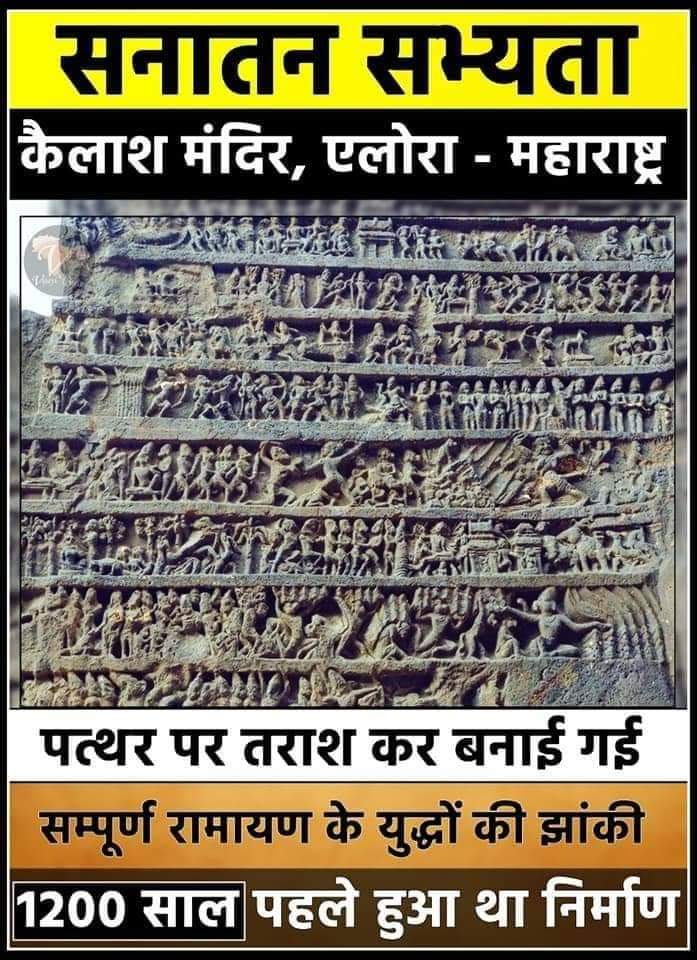 सनातन सभ्यता
कैलाश मंदिर, एलोरा - महाराष्ट्र
पत्थर पर तराश कर बनाई गई
सम्पूर्ण रामायण के युद्धों की झांकी
1200 साल पहले हुआ था निर्माण